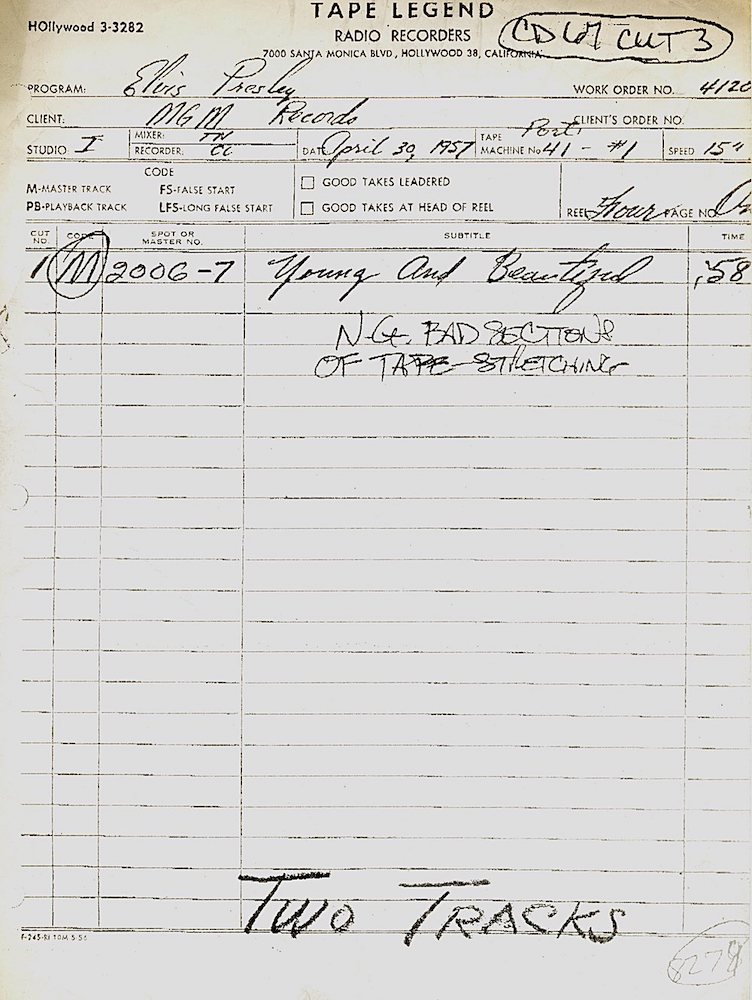 TAPE LEGEND
HOllywood 3-3282
RADIO RECORDERS
CD CUT 3
7000 SANTA MONICA BLVD., HOLLYWOOD 38, CALIFORNIA.
PROGRAM: Elvis Presley WORK ORDER NO. 4120
CLIENT: MGM Records CLIENT'S ORDER NO.
STUDIO I MIXER: TN RECORDER: CC DATE April 30, 1957 TAPE MACHINE No Port. 41 - #1 SPEED 15"
CODE
M-MASTER TRACK FS-FALSE START GOOD TAKES LEADERED
PB-PLAYBACK TRACK LFS-LONG FALSE START GOOD TAKES AT HEAD OF REEL REEL Four PAGE NO.
CUT NO. CODE SPOT OR MASTER NO. SUBTITLE TIME
1 M 2006-7 Young And Beautiful :58
N.G. BAD SECTIONS
OF TAPE STRETCHING
TWO TRACKS
F-245-RI 10M 5-56